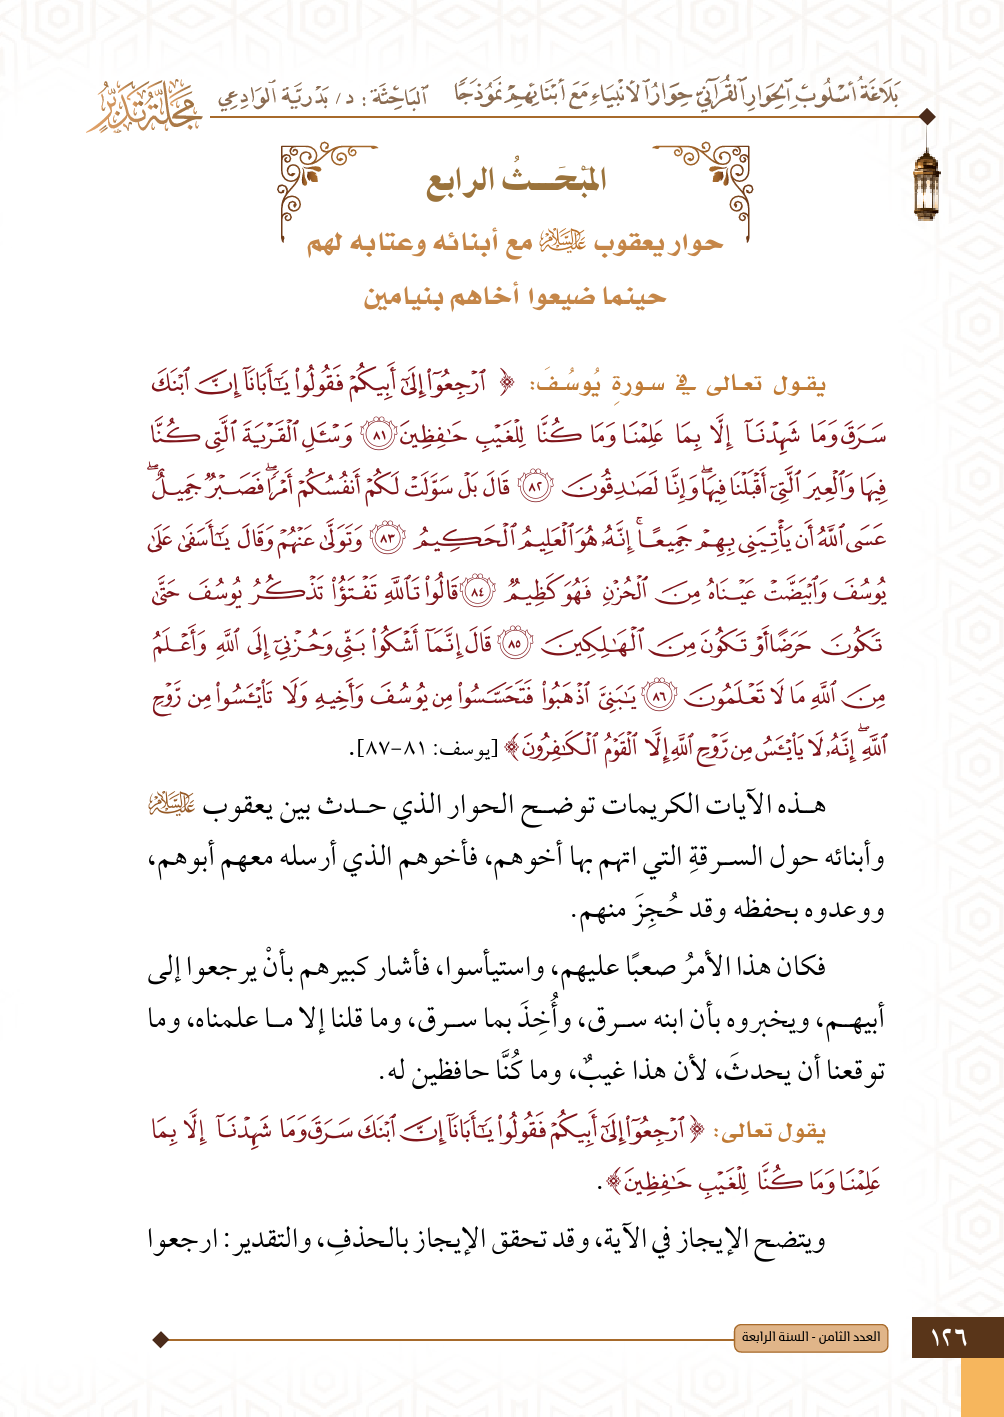 بَلَاغَةُ أُسْلُوبِ الْحِوَارِ الْقُرْآنِيِّ حِوَارُ الْأَنْبِيَاءِ مَعَ أَبْنَائِهِمْ نَمُوذَجًا    الْبَاحِثَة : د/ بَدْرِيَّة الْوَادِعِي    مَجَلَّةُ تَدَبُّر
المَبْحَــثُ الرابع
حوار يعقوب عَلَيْهِ السَّلَامُ مع أبنائه وعتابه لهم
حينما ضيعوا أخاهم بنيامين
يقـول تعـالى في سـورةِ يُوسُـفَ: ﴿ ٱرۡجِعُوٓاْ إِلَىٰٓ أَبِيكُمۡ فَقُولُواْ يَٰٓأَبَانَآ إِنَّ ٱبۡنَكَ
سَرَقَ وَمَا شَهِدۡنَآ إِلَّا بِمَا عَلِمۡنَا وَمَا كُنَّا لِلۡغَيۡبِ حَٰفِظِينَ ٨١ وَسۡـَٔلِ ٱلۡقَرۡيَةَ ٱلَّتِي كُنَّا
فِيهَا وَٱلۡعِيرَ ٱلَّتِيٓ أَقۡبَلۡنَا فِيهَاۖ وَإِنَّا لَصَٰدِقُونَ ٨٢ قَالَ بَلۡ سَوَّلَتۡ لَكُمۡ أَنفُسُكُمۡ أَمۡرٗاۖ فَصَبۡرٞ جَمِيلٌۖ
عَسَى ٱللَّهُ أَن يَأۡتِيَنِي بِهِمۡ جَمِيعًاۚ إِنَّهُۥ هُوَ ٱلۡعَلِيمُ ٱلۡحَكِيمُ ٨٣ وَتَوَلَّىٰ عَنۡهُمۡ وَقَالَ يَٰٓأَسَفَىٰ عَلَىٰ
يُوسُفَ وَٱبۡيَضَّتۡ عَيۡنَاهُ مِنَ ٱلۡحُزۡنِ فَهُوَ كَظِيمٞ ٨٤ قَالُواْ تَٱللَّهِ تَفۡتَؤُاْ تَذۡكُرُ يُوسُفَ حَتَّىٰ
تَكُونَ حَرَضًا أَوۡ تَكُونَ مِنَ ٱلۡهَٰلِكِينَ ٨٥ قَالَ إِنَّمَآ أَشۡكُواْ بَثِّي وَحُزۡنِيٓ إِلَى ٱللَّهِ وَأَعۡلَمُ
مِنَ ٱللَّهِ مَا لَا تَعۡلَمُونَ ٨٦ يَٰبَنِيَّ ٱذۡهَبُواْ فَتَحَسَّسُواْ مِن يُوسُفَ وَأَخِيهِ وَلَا تَاْيۡـَٔسُواْ مِن رَّوۡحِ
ٱللَّهِۖ إِنَّهُۥ لَا يَاْيۡـَٔسُ مِن رَّوۡحِ ٱللَّهِ إِلَّا ٱلۡقَوۡمُ ٱلۡكَٰفِرُونَ﴾ [يوسف: ٨١-٨٧].
هــذه الآيات الكريمات توضــح الحوار الذي حــدث بين يعقوب عَلَيْهِ السَّلَامُ
وأبنائه حول الســرقةِ التي اتهم بها أخوهم، فأخوهم الذي أرسله معهم أبوهم،
ووعدوه بحفظه وقد حُجِزَ منهم.
فكان هذا الأمرُ صعبًا عليهم، واستيأسوا، فأشار كبيرهم بأنْ يرجعوا إلى
أبيهــم، ويخبروه بأن ابنه ســرق، وأُخِذَ بما ســرق، وما قلنا إلا مــا علمناه، وما
توقعنا أن يحدثَ، لأن هذا غيبٌ، وما كُنَّا حافظين له.
يقول تعالى: ﴿ ٱرۡجِعُوٓاْ إِلَىٰٓ أَبِيكُمۡ فَقُولُواْ يَٰٓأَبَانَآ إِنَّ ٱبۡنَكَ سَرَقَ وَمَا شَهِدۡنَآ إِلَّا بِمَا
عَلِمۡنَا وَمَا كُنَّا لِلۡغَيۡبِ حَٰفِظِينَ﴾.
ويتضح الإيجاز في الآية، وقد تحقق الإيجاز بالحذفِ، والتقدير: ارجعوا
العدد الثامن - السنة الرابعة
١٢٦